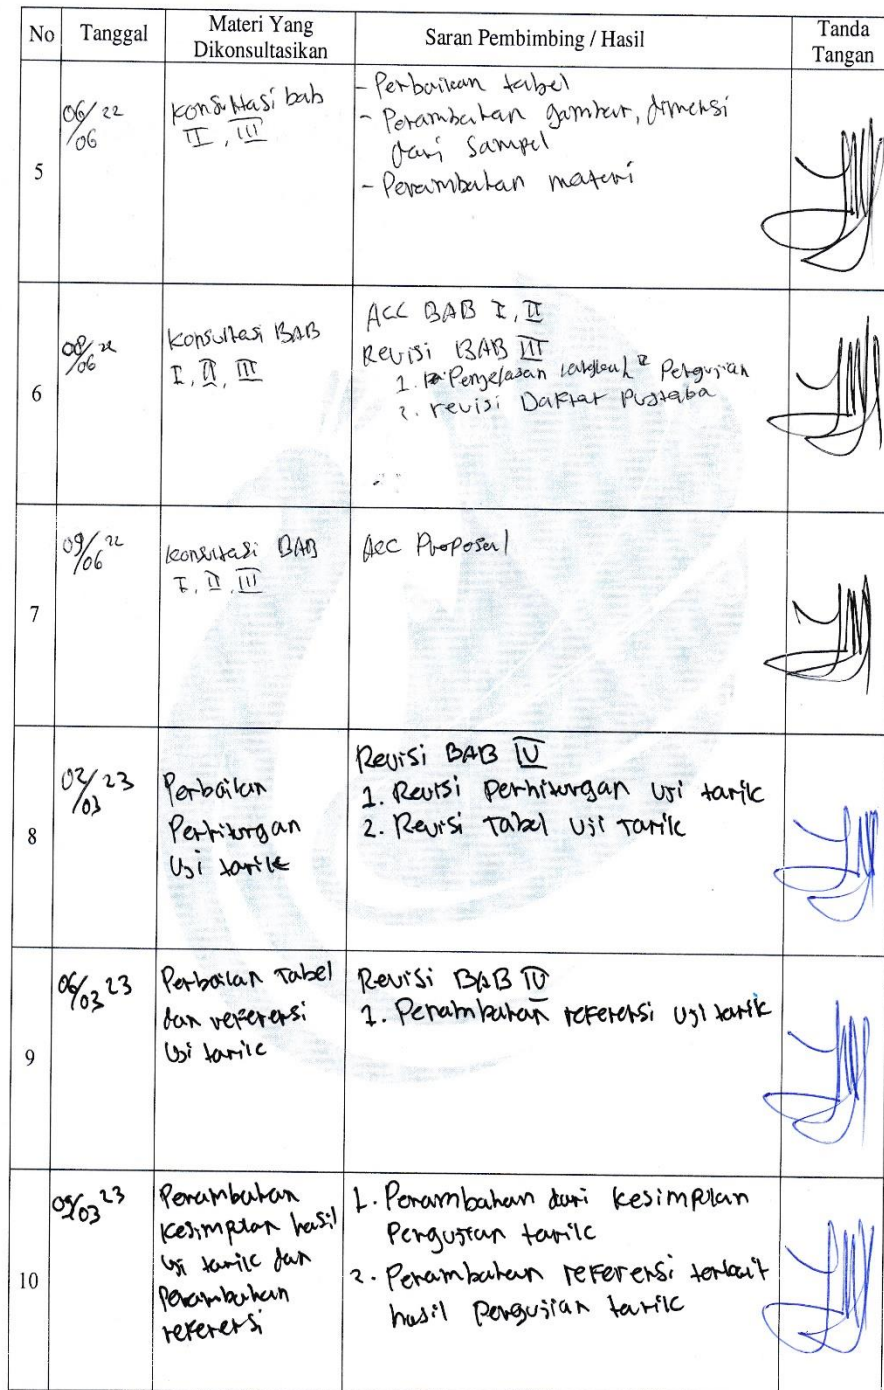 No Tanggal Materi Yang Dikonsultasikan Saran Pembimbing / Hasil Tanda Tangan
5
06/06 22
Konsultasi bab
II, III
- Perbaikan tabel
- Penambahan gambar, dimensi
dari sampel
- Penambahan materi
6
08/06 22
Konsultasi BAB
I, II, III
ACC BAB I, II
Revisi BAB III
1. Penjelasan langkah² Pengujian
2. revisi Daftar Pustaka
7
09/06 22
Konsultasi BAB
I, II, III
Acc Proposal
8
02/03 23
Perbaikan
Perhitungan
Uji tarik
Revisi BAB IV
1. Revisi perhitungan uji tarik
2. Revisi Tabel Uji Tarik
9
06/03 23
Perbaikan Tabel
dan referensi
Uji tarik
Revisi BAB IV
1. Penambahan referensi uji tarik
10
09/03 23
Penambahan
Kesimpulan hasil
uji tarik dan
Penambahan
referensi
1. Penambahan dari kesimpulan
Pengujian tarik
2. Penambahan referensi terkait
hasil pengujian tarik